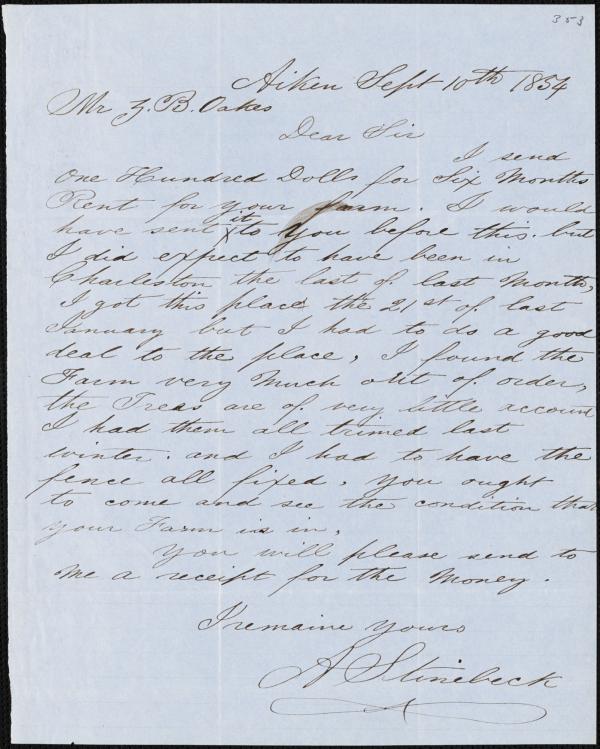 353
Aiken Sept 10th 1854
Mr Z. B. Oakes
Dear Sir
I send
One Hundred Dolls for Six Months
Rent for your farm. I would
have sent it to you before this. but
I did expect to have been in
Charleston the last of last Month,
I got this place the 21st of last
January but I had to do a good
deal to the place, I found the
Farm very Much out of order,
the Treas are of very little account
I had them all trimed last
winter. and I had to have the
fence all fixed, you ought
to come and see the condition that
your Farm is in,
You will please send to
Me a receipt for the Money.
I remaine yours
A Stinebeck